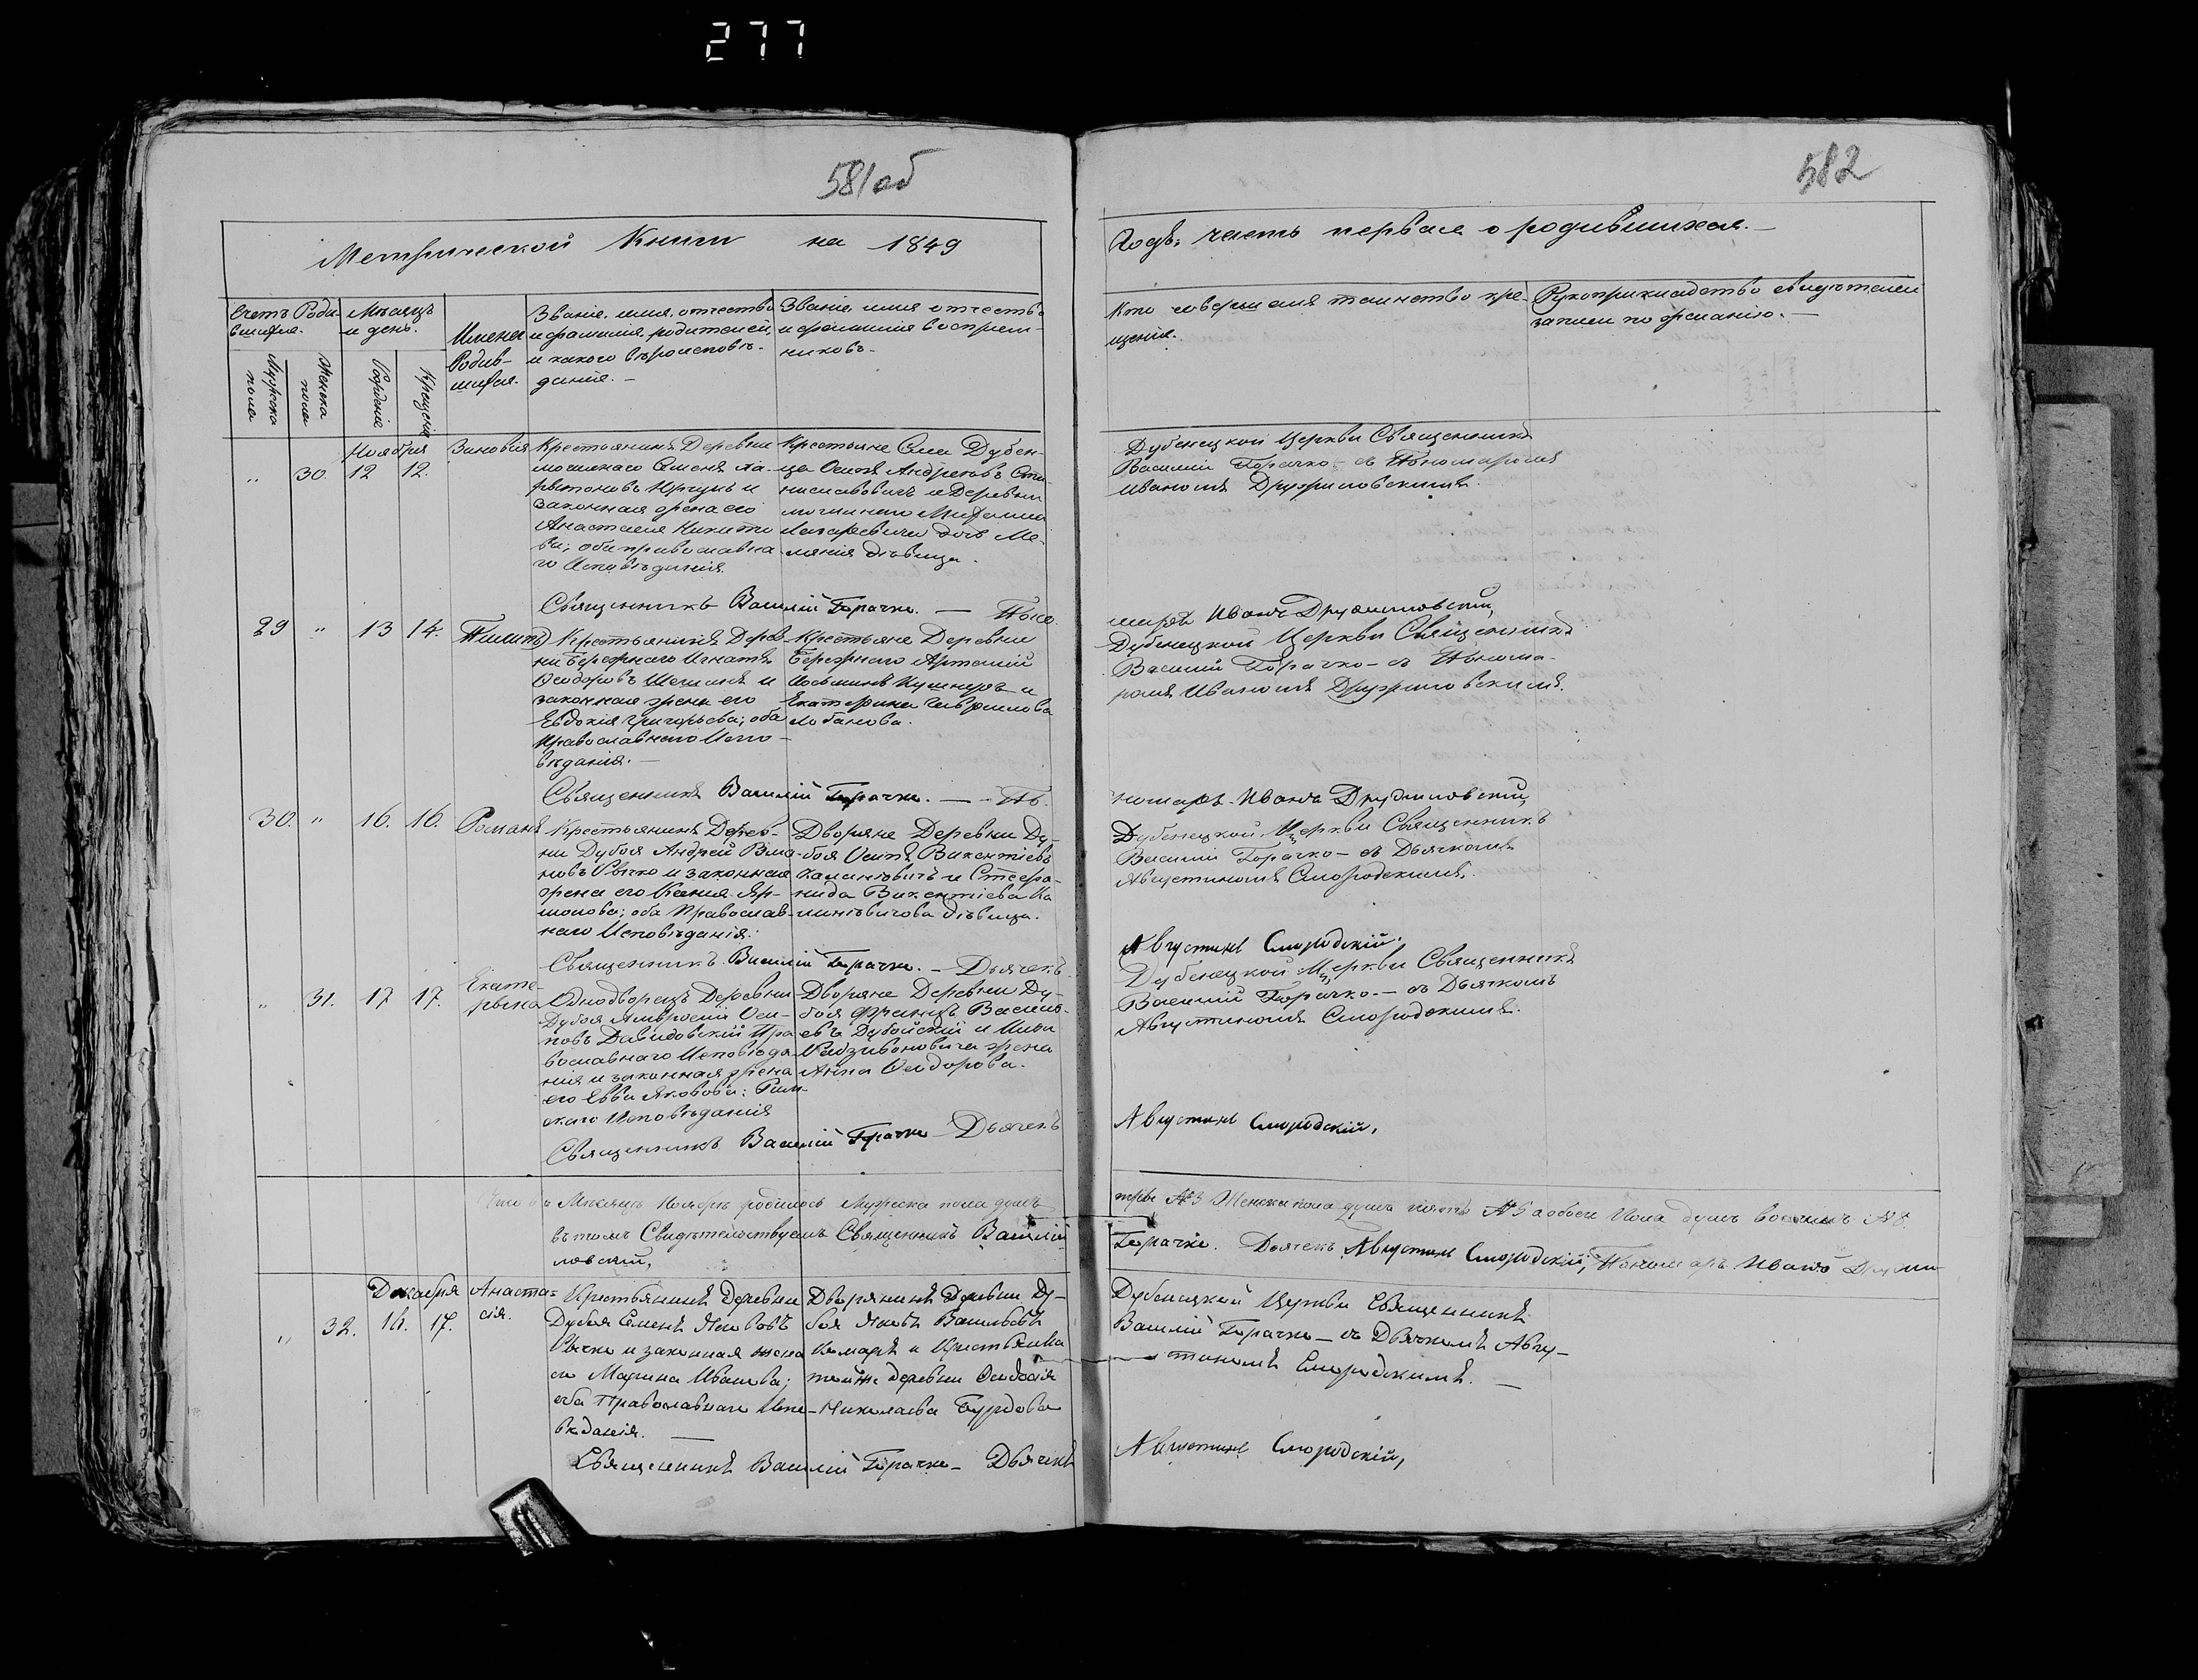 277
581 об
582
Метрической Книги на 1849
Годъ, часть первая о родившихся. —
Счетъ Роди-
вшихся.
Мѣсяцъ
и день.
Мужеска
пола
Женска
пола
Рожденіе
Крещеніе
Имена
Родив-
шихся.
Званіе, имя, отчество
и фамилія родителей,
и какого вѣроисповѣ-
данія. —
Званіе, имя отчество
и фамилія воспріем-
никовъ.
Кто совершалъ таинство кре-
щенія.
Рукоприкладство свидѣтелей
записи по желанію. —
Ноября
" 30. 12 12.
Зиновія
Крестьянинъ Деревни
Семенъ
и
законная жена его
Анастасія Никити-
ва; оба православна-
го Исповѣданія.
Крестьяне Села Дубен-
ца Осипъ Андреевъ
и Деревни
дочь Ме-
ланія дѣвица.
Дубенецкой Церкви Священникъ
Василій Горачко — съ Пономаремъ
Иваномъ Дружиловскимъ.
Священникъ Василій Горачко. — Поно-
маръ Иванъ Дружиловскій,
29 " 13 14.
Филипъ
Крестьянинъ Дерев-
ни Бережнаго Игнатъ
Ѳеодоровъ и
законная жена его
Евдокія Григорьева; оба
Православнаго Испо-
вѣданія. —
Крестьяне Деревни
Бережнаго Артемій
Кушнеръ и
Екатерина Гаврилова
Лобанова.
Дубенецкой Церкви Священникъ
Василій Горачко — съ Понома-
ремъ Иваномъ Дружиловскимъ.
Священникъ Василій Горачко. — По-
номаръ Иванъ Дружиловскій,
30. " 16. 16.
Романъ
Крестьянинъ Дерев-
ни Дубоя Андрей
новъ и законная
жена его Ксенія Яр-
молова; оба Православ-
наго Исповѣданія:
Дворяне Деревни Ду-
боя Осипъ Викентіевъ
и Стефа-
нида Викентіева Ка-
дѣвица.
Дубенецкой Церкви Священникъ
Василій Горачко — съ Дьячкомъ
Августиномъ Смородскимъ.
Священникъ Василій Горачко. — Дьячекъ
Августинъ Смородскій.
" 31. 17 17.
Екате-
рина
Однодворецъ Деревни
Дубоя Амвросій Оси-
повъ Давидовскій Пра-
вославнаго Исповѣда-
нія и законная жена
его Евва Яковова: Рим-
скаго Исповѣданія
Дворяне Деревни Ду-
боя Францъ Василь-
евъ Дубойскій и Ильи
Радзивоновича жена
Анна Ѳеодорова.
Дубенецкой Церкви Священникъ
Василій Горачко. — съ Дьячкомъ
Августиномъ Смородскимъ.
Священникъ Василій Горачко — Дьячекъ
Августинъ Смородскій,
Что въ Мѣсяцѣ Ноябрѣ родилось Мужеска пола душъ
три №3 Женска пола душъ пять №5 а обоего Пола душъ восемь №8.
въ томъ Свидѣтельствуемъ Священникъ Василій
Горачко. Дьячекъ Августинъ Смородскій, Пономаръ Иванъ Дружи-
ловскій,
Декабря
" 32. 16. 17.
Анаста-
сія.
Крестьянинъ Деревни
Дубоя Семенъ Яковлевъ
и законная жена
его Марина Иванова;
оба Православнаго Испо-
вѣданія. —
Дворянинъ Деревни Ду-
боя Яковъ Васильевъ
Комаръ и Крестьянка
той же деревни Ѳеодосія
Николаева Бурдова
Дубенецкой Церкви Священникъ
Василій Горачко — съ Дьячкомъ Авгу-
стиномъ Смородскимъ. —
Священникъ Василій Горачко — Дьячекъ
Августинъ Смородскій,